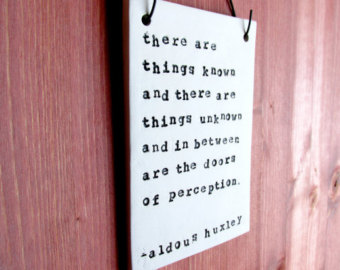 there are
things known
and there are
things unknown
and in between
are the doors
of perception.
-aldous huxley